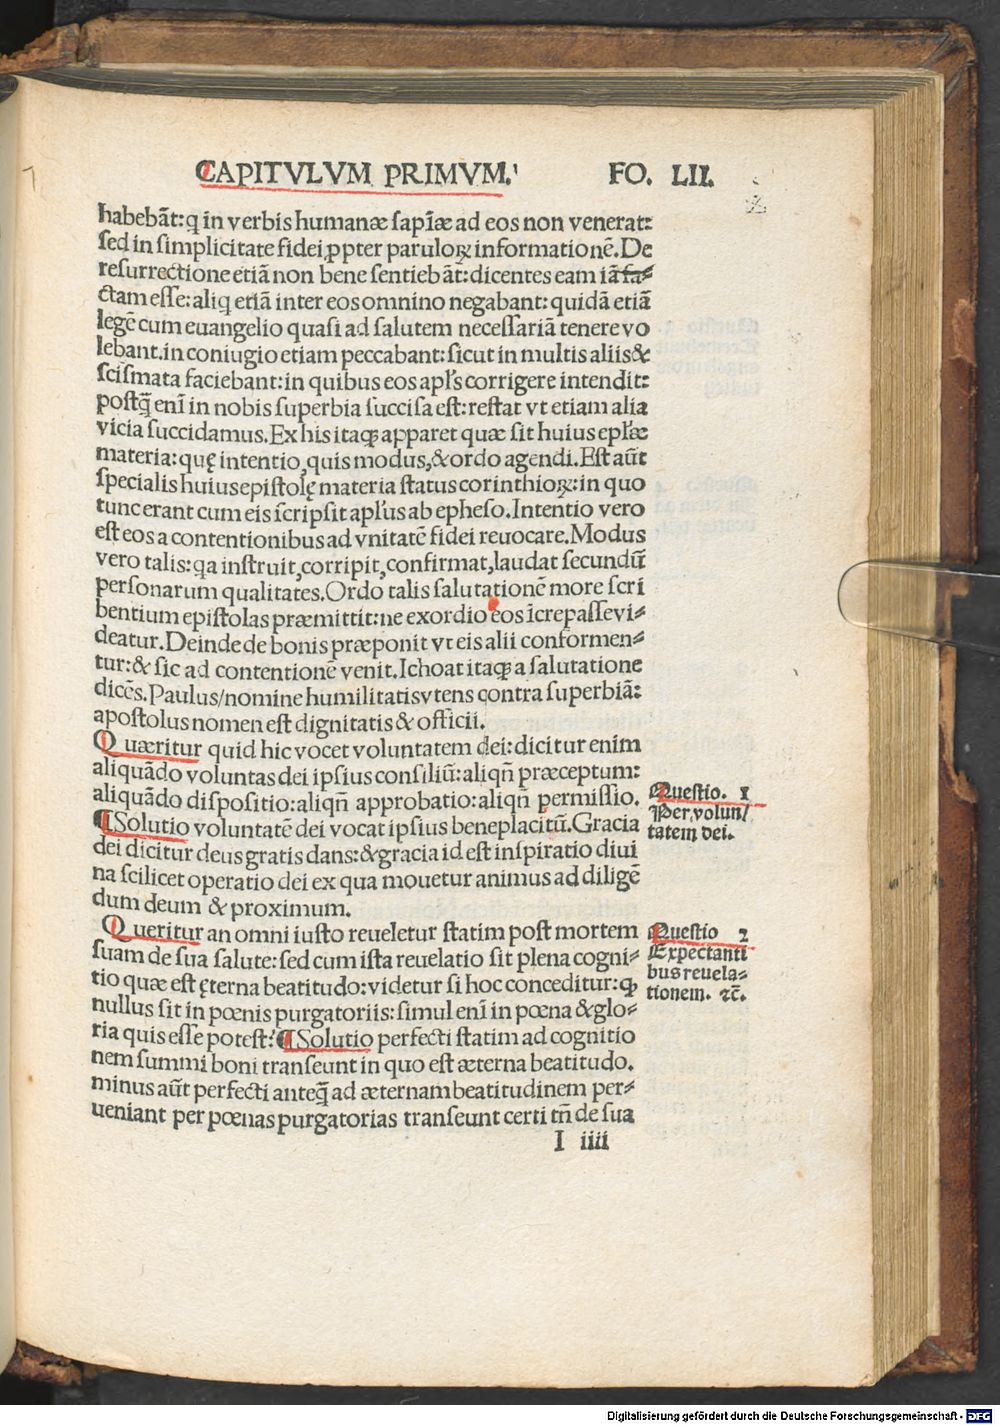 CAPITVLVM PRIMVM. FO. LII.
habebãt: ꝗ in verbis humanæ sapĩæ ad eos non venerat:
sed in simplicitate fidei ꝓpter paruloꝝ informationẽ. De
resurrectione etiã non bene sentiebãt: dicentes eam iã fa-
ctam esse: aliq̃ etiã inter eos omnino negabant: quidã etiã
legẽ cum euangelio quasi ad salutem necessariã tenere vo
lebant. in coniugio etiam peccabant: sicut in multis aliis &
scismata faciebant: in quibus eos apl̃s corrigere intendit:
postq̃ enĩ in nobis superbia succisa est: restat vt etiam alia
vicia succidamus. Ex his itaqꝫ apparet quæ sit huius epl̃æ
materia: quę intentio, quis modus, & ordo agendi. Est aũt
specialis huius epistolę materia status corinthioꝝ: in quo
tunc erant cum eis scripsit apl̃us ab epheso. Intentio vero
est eos a contentionibus ad vnitatẽ fidei reuocare. Modus
vero talis: qa instruit, corripit, confirmat, laudat secundũ
personarum qualitates. Ordo talis salutationẽ more scri
bentium epistolas præmittit: ne exordio eos ĩcrepasse vi-
deatur. Deinde de bonis præponit vt eis alii conformen-
tur: & sic ad contentionẽ venit. Ichoat itaqꝫ a salutatione
dicẽs. Paulus/ nomine humilitatis vtens contra superbiã:
apostolus nomen est dignitatis & officii.
Quæritur quid hic vocet voluntatem dei: dicitur enim
aliquãdo voluntas dei ipsius consiliũ: aliqñ præceptum:
aliquãdo dispositio: aliqñ approbatio: aliqñ permissio.
¶Solutio voluntatẽ dei vocat ipsius beneplacitũ. Gracia
dei dicitur deus gratis dans: & gracia id est inspiratio diui
na scilicet operatio dei ex qua mouetur animus ad diligẽ
dum deum & proximum.
Queritur an omni iusto reueletur statim post mortem
suam de sua salute: sed cum ista reuelatio sit plena cogni-
tio quæ est ęterna beatitudo: videtur si hoc conceditur: ꝙ
nullus sit in pœnis purgatoriis: simul enĩ in pœna & glo-
ria quis esse potest? ¶Solutio perfecti statim ad cognitio
nem summi boni transeunt in quo est æterna beatitudo.
minus aũt perfecti anteq̃ ad æternam beatitudinem per-
ueniant per pœnas purgatorias transeunt certi tñ de sua
I iiii
Questio. 1
Per volun/
tatem dei.
Questio 2
Expectanti
bus reuela-
tionem. ⁊c̃.
Digitalisierung gefördert durch die Deutsche Forschungsgemeinschaft - DFG